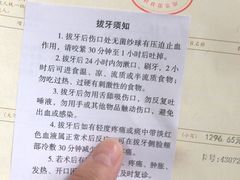 拔牙须知
1. 拔牙后伤口处无菌纱球有压迫止血
作用，请咬紧 30 分钟至 1 小时后吐掉。
2. 拔牙后 24 小时内勿漱口、刷牙，2 小
时后可进食温、凉、流质或半流质食物；
勿吃过热、过硬有刺激性的食物。
3. 拔牙后勿用舌舔吸伤口，勿反复吐
唾液、勿用手或其他物品触动伤口，避免
出血或感染。
4. 拔牙后如有轻度疼痛或痰中带淡红
色血液属正常术后反应，可在拔牙侧脸颊
部冷敷 30 分钟减
5. 若术后有
发热、开口
疼痛、肿胀、
及时复诊
1296 65
卡号:43072